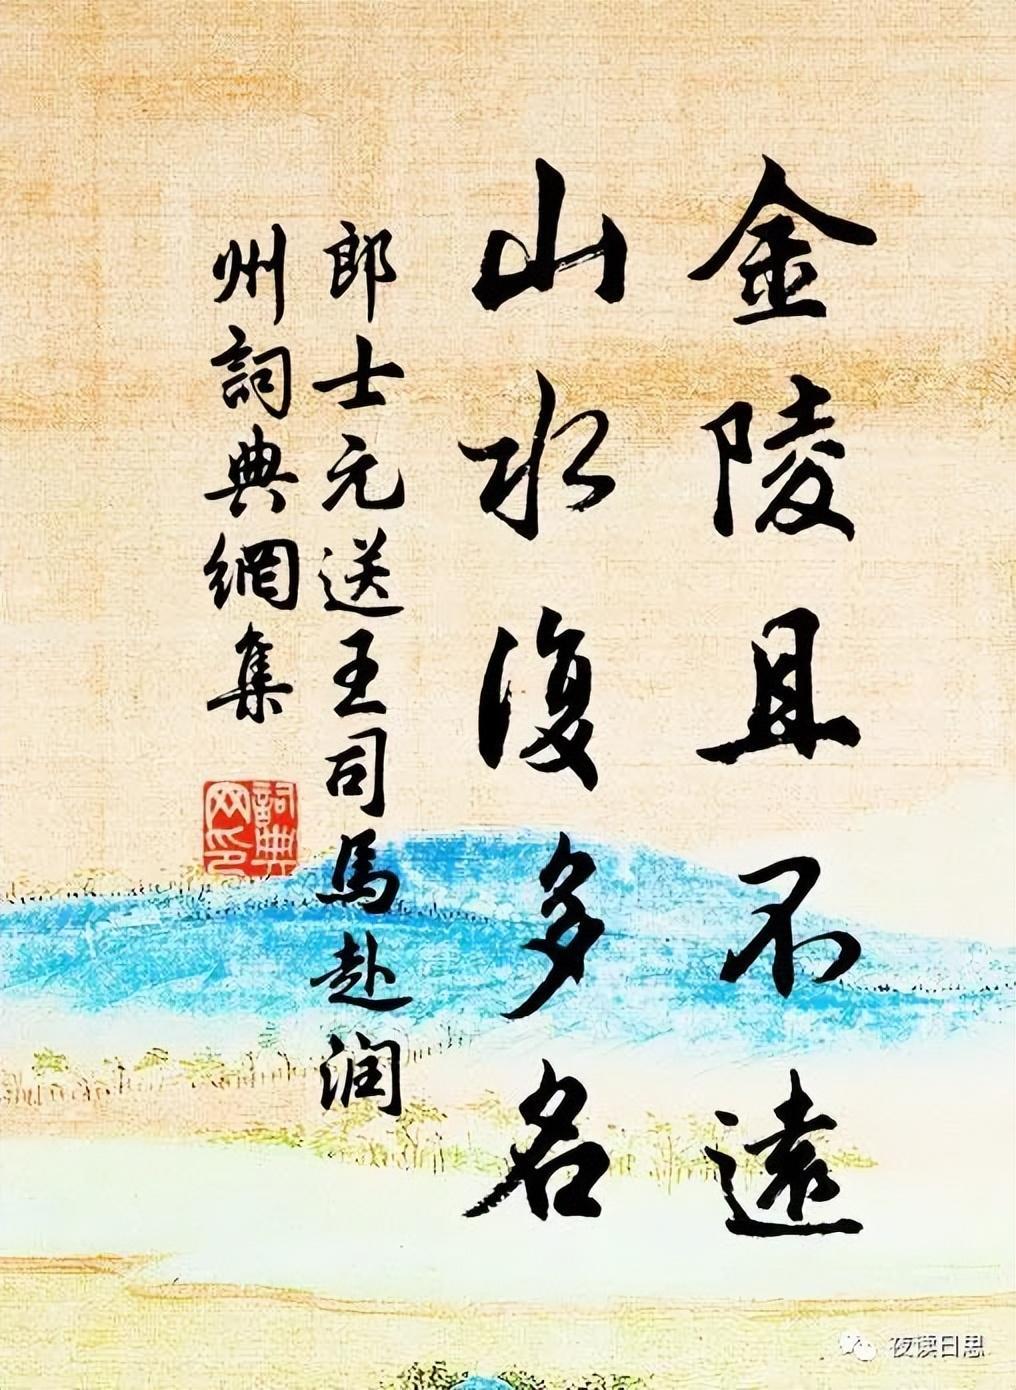 金陵且不遠
山水復多名
郎士元送王司馬赴润
州詞典網集
詞典
网印
夜读日思